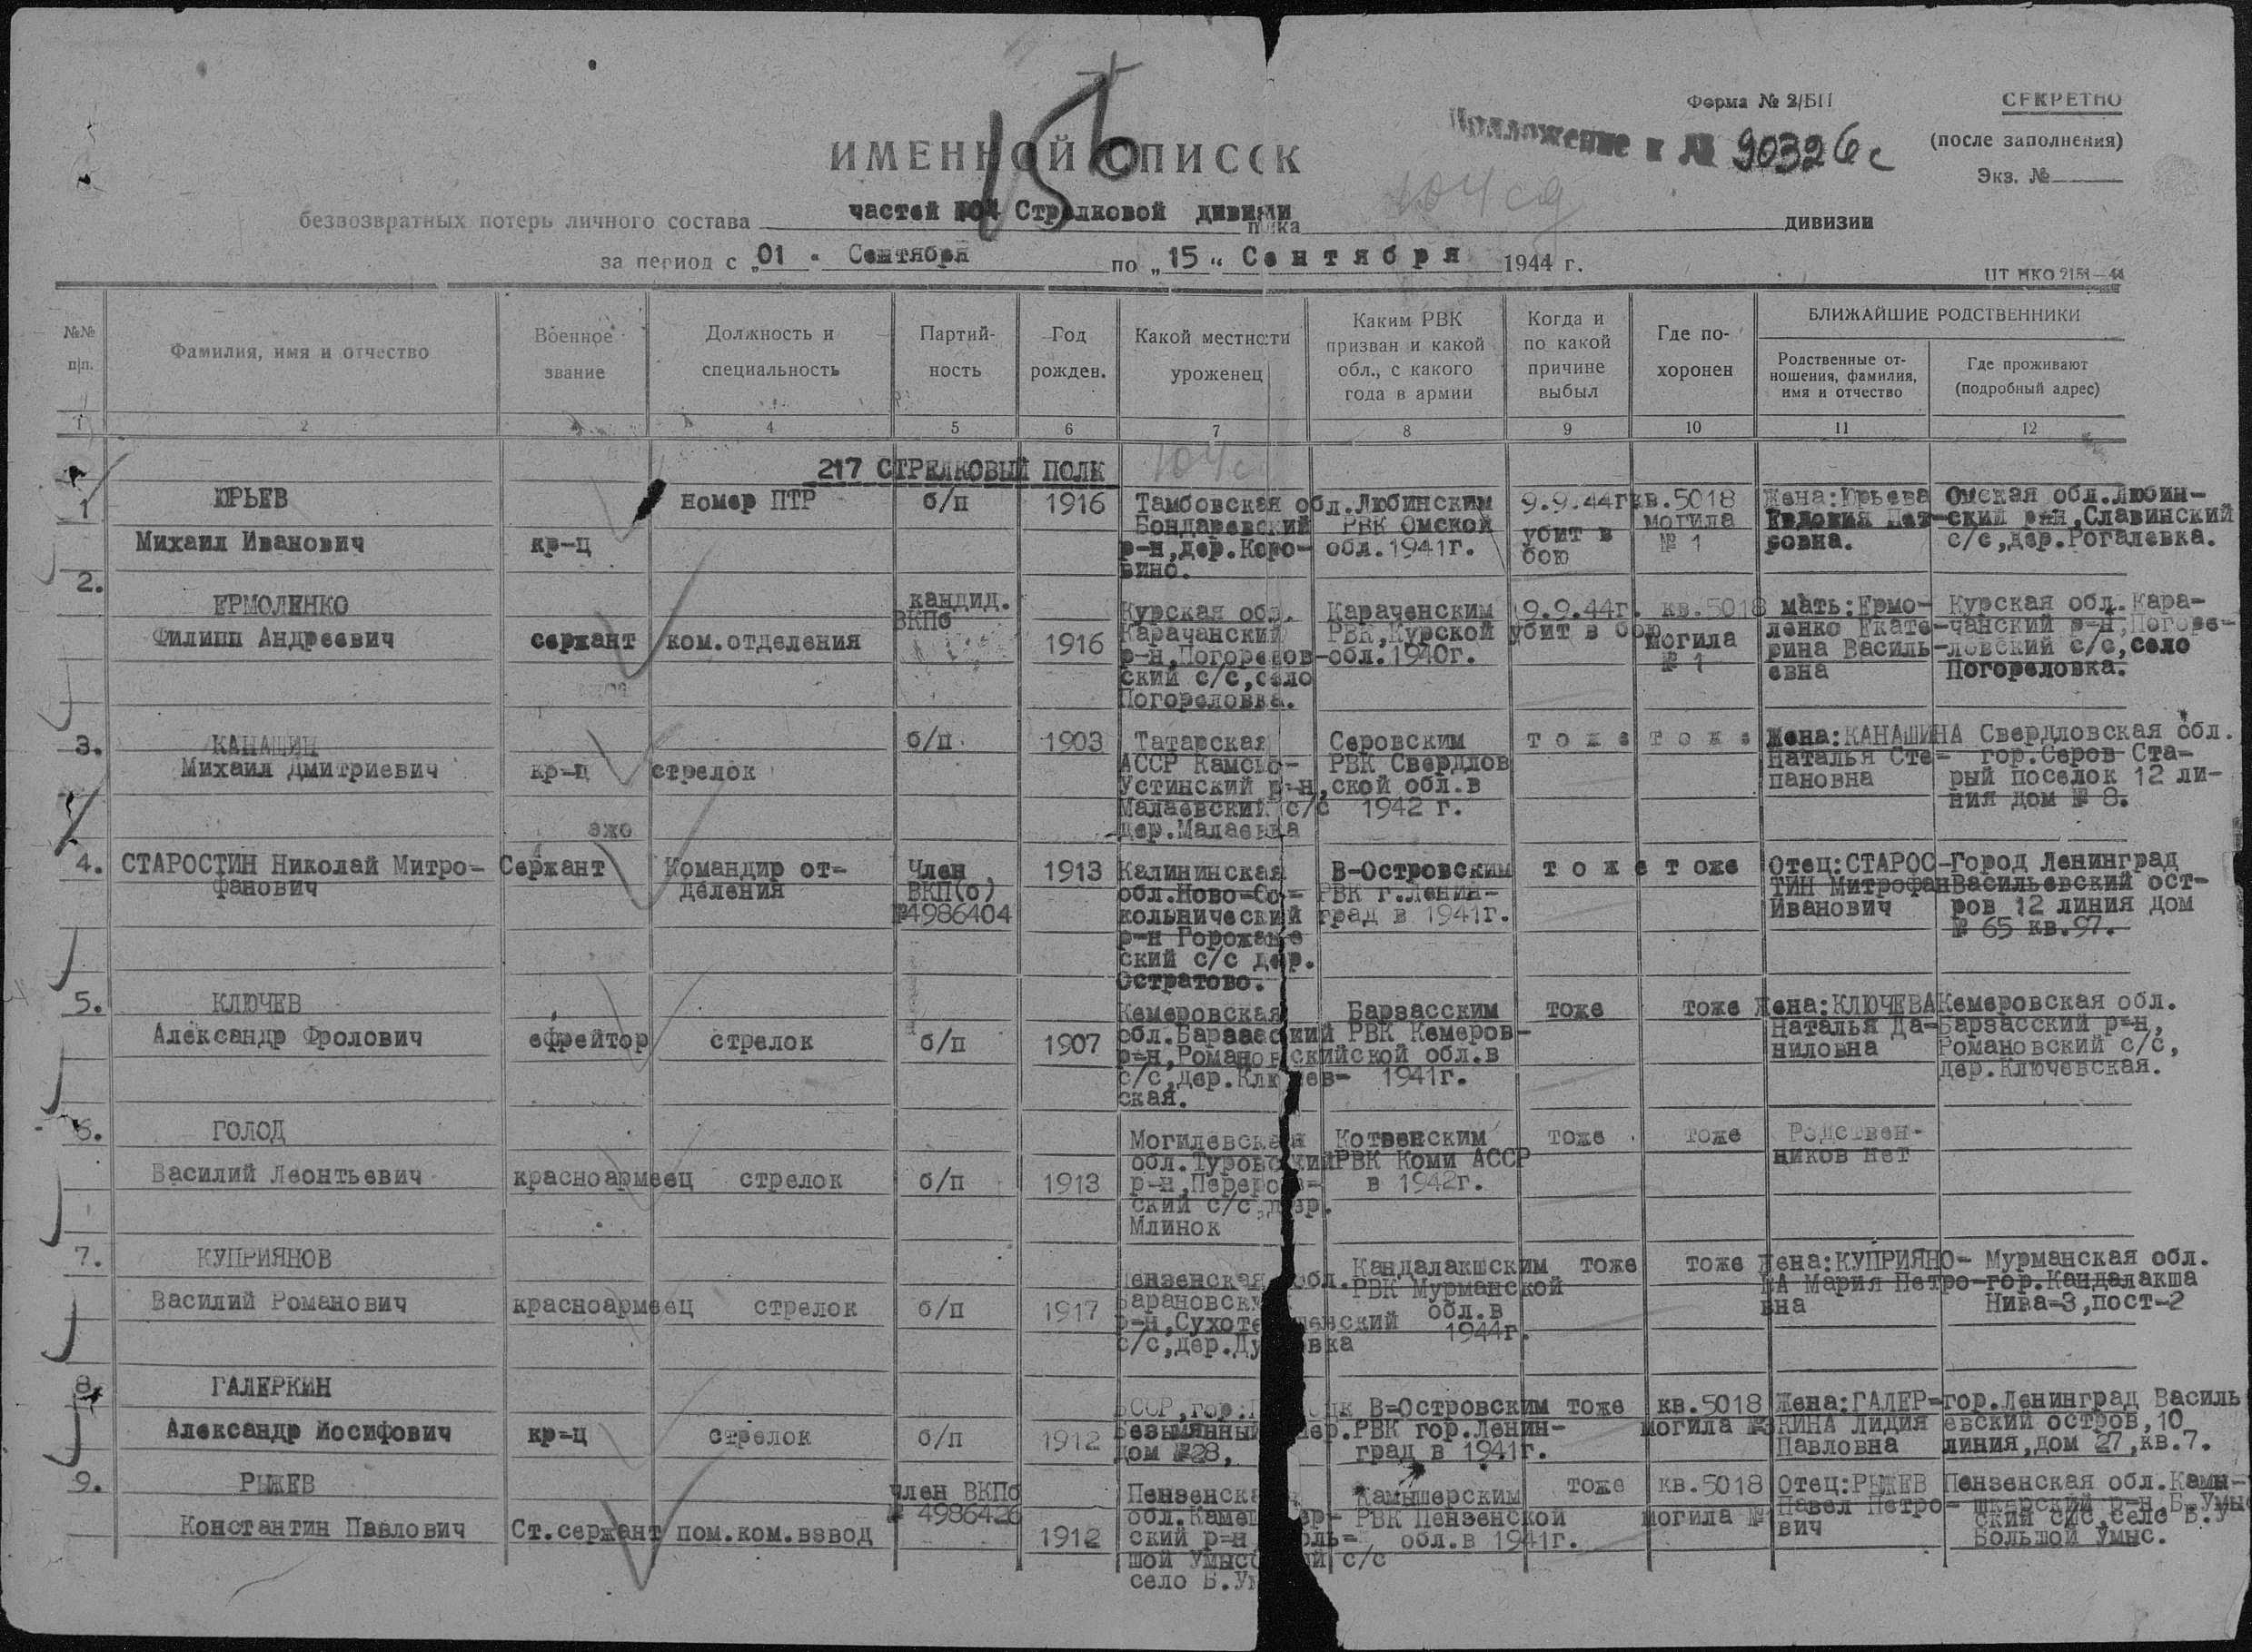 Форма № 2/БП
СЕКРЕТНО
(после заполнения)
Экз. №
156
ИМЕННОЙ СПИСОК
Приложение к № 90326с
104 сд
безвозвратных потерь личного состава частей 104 Стрелковой дивизии полка дивизии
за период с „01 “ Сентября по „15“ Сентября 1944 г.
ЦТ НКО 2151—44
№№ п/п.
Фамилия, имя и отчество
Военное звание
Должность и специальность
Партий-
ность
Год рожден.
Какой местности
уроженец
Каким РВК
призван и какой
обл., с какого
года в армии
Когда и
по какой
причине
выбыл
Где по-
хоронен
БЛИЖАЙШИЕ РОДСТВЕННИКИ
Родственные от-
ношения, фамилия,
имя и отчество
Где проживают
(подробный адрес)
1 2 4 5 6 7 8 9 10 11 12
217 СТРЕЛКОВЫЙ ПОЛК
104 с
1
ЮРЬЕВ
Михаил Иванович
кр-ц
номер ПТР
б/п
1916
Тамбовская обл.
Бондаревский
р-н,дер.Коро-
вино.
Любинским
РВК Омской
обл.1941г.
9.9.44г
убит в
бою
кв.5018
могила
№ 1
Жена:Юрьева
Евдокия Пет-
ровна.
Омская обл.Любин-
ский р-н,Славинский
с/с,дер.Рогалевка.
2.
ЕРМОЛЕНКО
Филипп Андреевич
сержант
ком.отделения
кандид.
ВКПб
1916
Курская обл.
Карачанский
р-н,Погорелов-
ский с/с,село
Погореловка.
Караченским
РВК,Курской
обл.1940г.
9.9.44г.
убит в бою
кв.5018
могила
№ 1
мать:Ермо-
ленко Екате-
рина Василь-
евна
Курская обл.Кара-
чанский р-н,Погоре-
ловский с/с,село
Погореловка.
3.
КАНАШИН
Михаил Дмитриевич
кр-ц
стрелок
б/п
1903
Татарская
АССР Камско-
Устинский р-н,
Малаевский с/с
дер.Малаевка
Серовским
РВК Свердлов
ской обл.в
1942 г.
тоже
тоже
Жена:КАНАШИНА
Наталья Сте-
пановна
Свердловская обл.
гор.Серов Ста-
рый поселок 12 ли-
ния дом № 8.
эжо
4.
СТАРОСТИН Николай Митро-
фанович
Сержант
Командир от-
деления
Член
ВКП(б)
№4986404
1913
Калининская
обл.Ново-Со-
кольнический
р-н Горожане
ский с/с дер.
Остратово.
В-Островским
РВК г.Ленин-
град в 1941г.
тоже
тоже
Отец:СТАРОС-
ТИН Митрофан
Иванович
Город Ленинград
Васильевский ост-
ров 12 линия дом
№ 65 кв.97.
5.
КЛЮЧЕВ
Александр Фролович
ефрейтор
стрелок
б/п
1907
Кемеровская
обл.Барзасский
р-н,Романовский
с/с,дер.Ключев-
ская.
Барзасским
РВК Кемеров-
ской обл.в
1941г.
тоже
тоже
Жена:КЛЮЧЕВА
Наталья Да-
ниловна
Кемеровская обл.
Барзасский р-н,
Романовский с/с,
дер.Ключевская.
6.
ГОЛОД
Василий Леонтьевич
красноармеец
стрелок
б/п
1913
Могилевская
обл.Туровский
р-н,Переров-
ский с/с,дер.
Млинок
Котвенским
РВК Коми АССР
в 1942г.
тоже
тоже
Родствен-
ников нет
7.
КУПРИЯНОВ
Василий Романович
красноармеец
стрелок
б/п
1917
Пензенская обл.
Барановский
р-н,
с/с,дер.
Кандалакшским
РВК Мурманской
обл.в
1944г.
тоже
тоже
Жена:КУПРИЯНО-
ВА Мария Петро-
вна
Мурманская обл.
гор.Кандалакша
Нива-3,пост-2
8.
ГАЛЕРКИН
Александр Иосифович
кр-ц
стрелок
б/п
1912
БССР,гор.
Безымянный пер.
дом №28,
В-Островским
РВК гор.Ленин-
град в 1941г.
тоже
кв.5018
могила №3
Жена:ГАЛЕР-
КИНА Лидия
Павловна
гор.Ленинград Василь
евский остров,10
линия,дом 27,кв.7.
9.
РЫЖЕВ
Константин Павлович
Ст.сержант
пом.ком.взвод
член ВКПб
№ 4986426
1912
Пензенская
обл.Камешкер-
ский р-н Боль-
шой Умысский с/с
село Б.Ум
Камышерским
РВК Пензенской
обл.в 1941г.
тоже
кв.5018
могила №1
Отец:РЫЖЕВ
Павел Петро-
вич
Пензенская обл.Камы-
шкерский р-н,Б.Умыс
ский с/с,село Б.У
Большой Умыс.